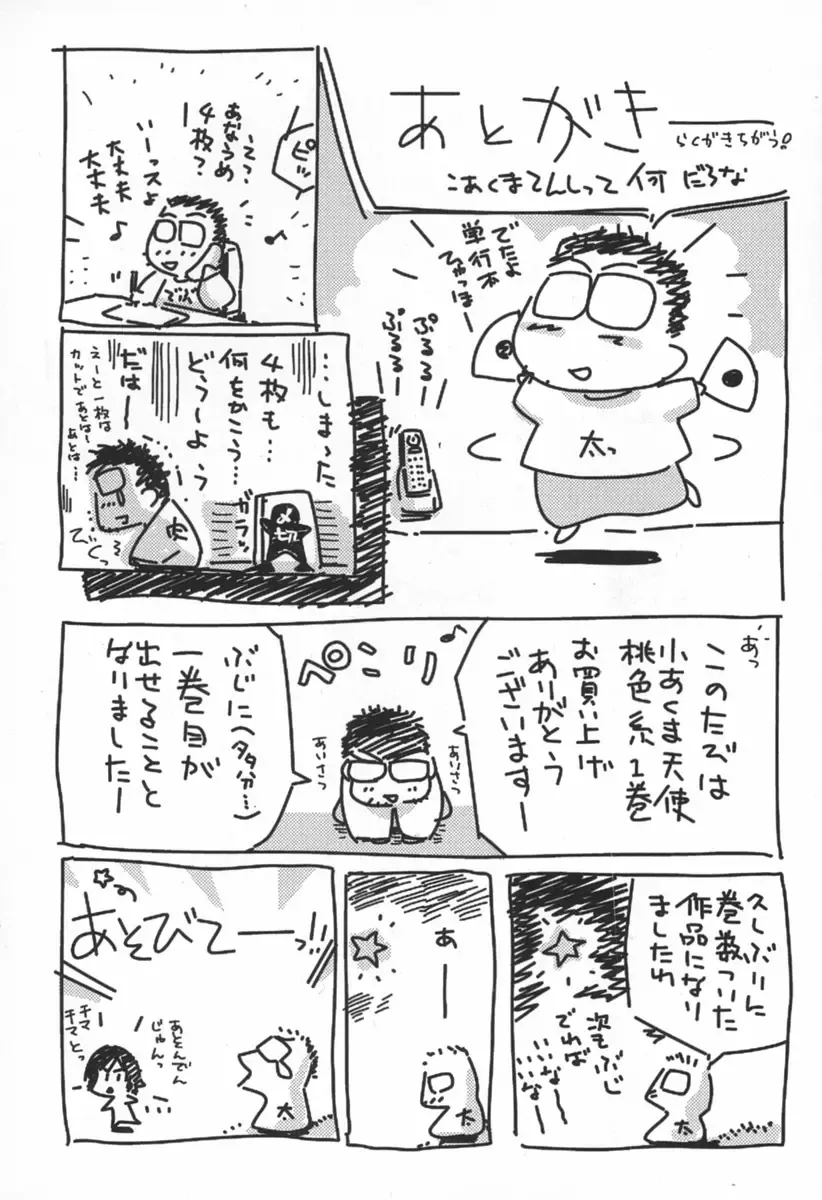 あとがき
らくがきちがう!
こあくまてんしって何だろな
でたよ
単行本
ひゃっほー
ぷるるるー
ぷるるるー
太っ
ピッ
…えっ?
あなうめ
4枚?
いーっスよ
大丈夫
大丈夫♪
…しまった
4枚も…
何をかこう…
どうしよう
ガラッ
だはー
えーと一枚は
カットであとはー
あとは…
びくっ
あっ
このたびは
小あくま天使
桃色系1巻
お買い上げ
ありがとう
ございますー
ペこり♪
あいさつ
あいさつ
ぶじに(多分…)
一巻目が
出せることと
なりましたー
久しぶりに
巻数ついた
作品になり
ましたわ
次もぶじ
でれば
いいなー
太
あー
太
あそびてーっ!!
あそんでん
じゃんっ
チマ
チマとっ
太